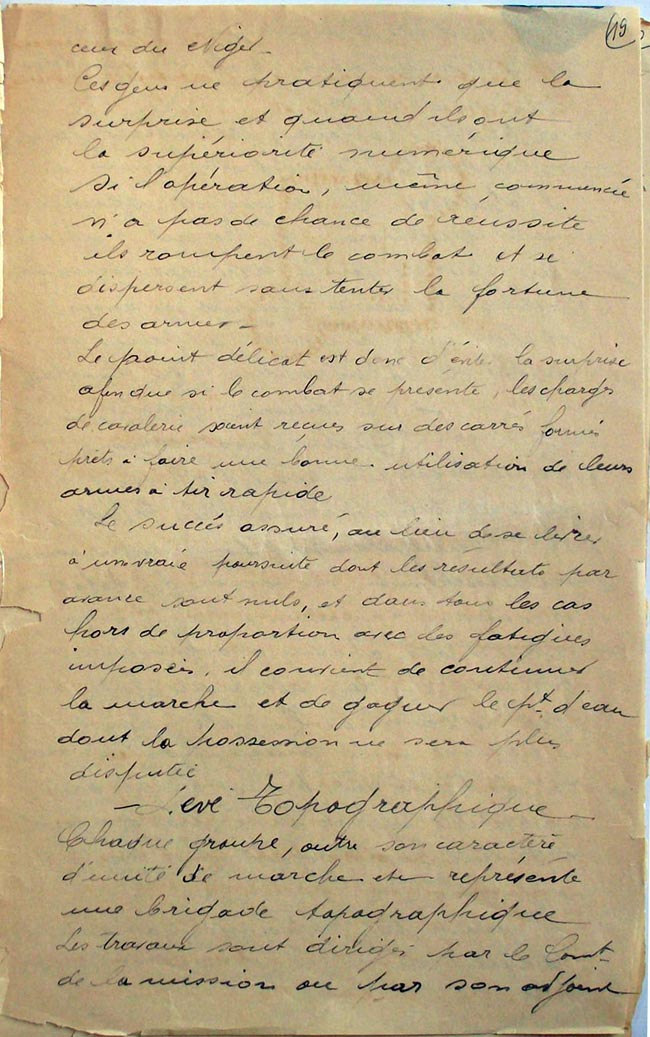 19
ceux du Niger_
Ces gens ne pratiquent que la
surprise et quand ils ont
la supériorité numérique
Si l'opération, même commencée
n'a pas de chance de réussite
ils rompent le combat et se
dispersent sans tenter la fortune
des armes_
Le point délicat est donc d'éviter la surprise
afin que si le combat se présente, les charges
de cavalerie soient reçues sur des carrés formés
prêts à faire une bonne utilisation de leurs
armes à tir rapide
Le succès assuré, au lieu de se livrer
à une vraie poursuite dont les résultats par
avance sont nuls, et dans tous les cas
hors de proportion avec les fatigues
imposées, il convient de continuer
la marche et de gagner le pt d'eau
dont la possession ne sera plus
disputée
_ Levé Topographique_
Chaque groupe, outre son caractère
d'unité de marche représente
une brigade topographique
Les travaux sont dirigés par le Comt
de la mission ou par son adjoint